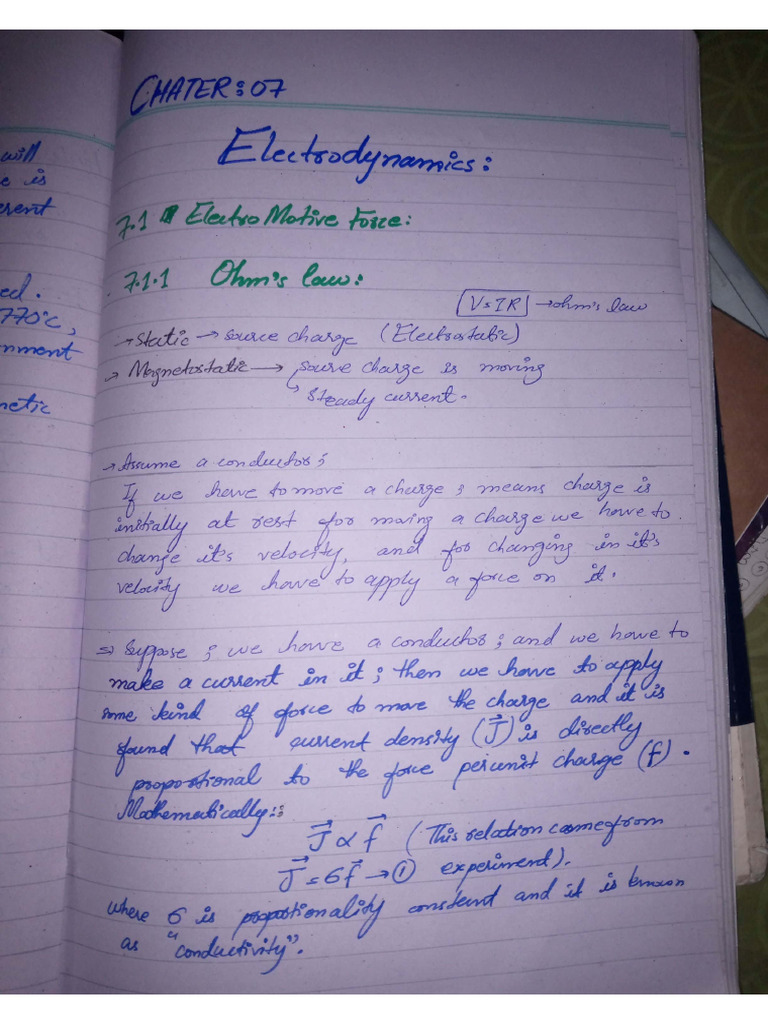 will
e is
erent
ed.
770°c,
nment
netic
CHATER:07
Electrodynamics:
7.1 Electro Motive Force:
7.1.1 Ohm's law:
V=IR → ohm's law
→ Static → source charge (Electrostatic)
→ Magnetostatic → source charge is moving
↳ Steady current.
→ Assume a conductor;
If we have to move a charge; means charge is
initially at rest for moving a charge we have to
change it's velocity, and for changing in it's
velocity we have to apply a force on it.
⇒ Suppose; we have a conductor; and we have to
make a current in it; then we have to apply
some kind of force to move the charge and it is
found that current density (J⃗) is directly
proportional to the force perunit charge (f).
Mathematically::
J⃗ ∝ f⃗ (This relation came from
J⃗ = σf⃗ → ① experiment).
where σ is proportionality constant and it is known
as "conductivity".